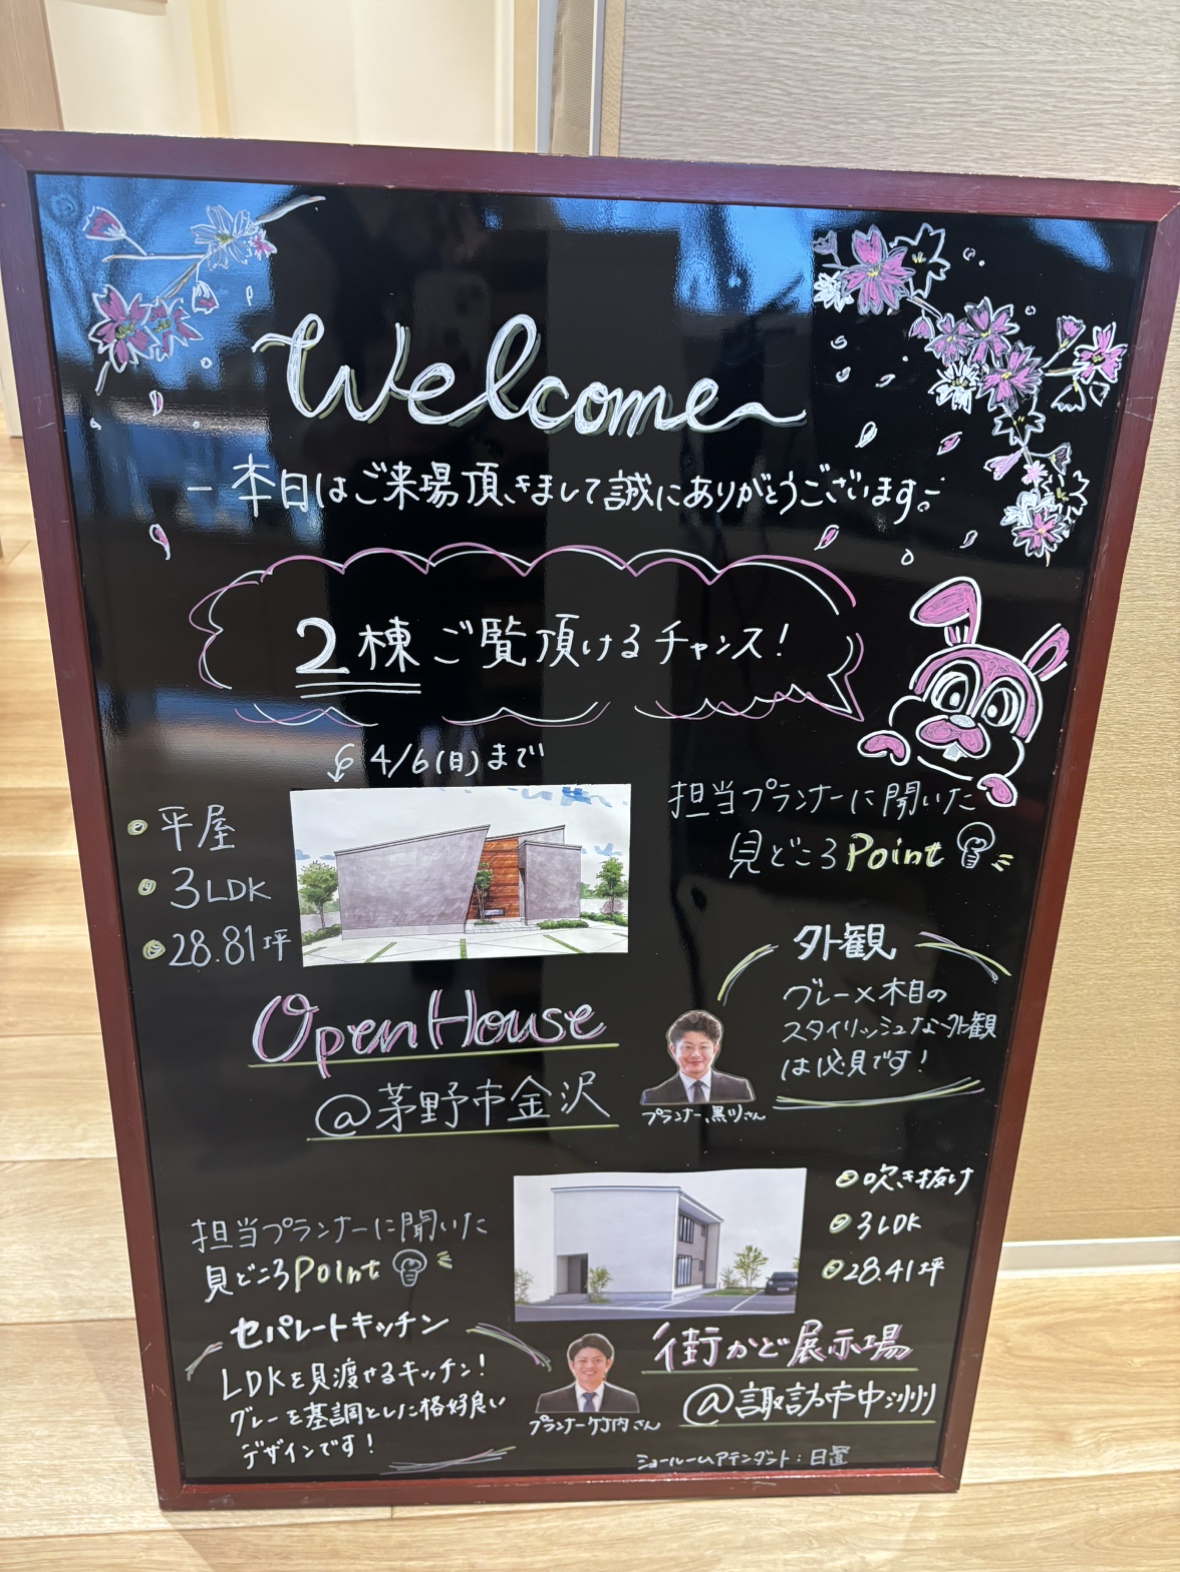 Welcome
- 本日はご来場頂きまして誠にありがとうございます -
2棟 ご覧頂けるチャンス!
4/6(日)まで
平屋
3LDK
28.81坪
担当プランナーに聞いた
見どころPoint
外観
グレー×木目の
スタイリッシュな外観
は必見です!
プランナー黒川さん
Open House
@茅野市金沢
吹き抜け
3LDK
28.41坪
担当プランナーに聞いた
見どころPoint
セパレートキッチン
LDKを見渡せるキッチン!
グレーを基調とした格好良い
デザインです!
プランナー竹内さん
街かど展示場
@諏訪市中洲
ショールームアテンダント:日置